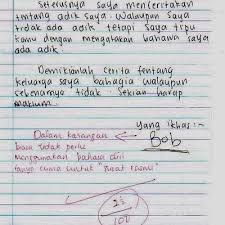 Seterusnya saya menceritakan
tentang adik saya. Walaupun saya
tidak ada adik tetapi saya tipu
kamu dengan mengatakan bahawa saya
ada adik.
Demikianlah cerita tentang
keluarga saya bahagia walaupun
sebenarnya tidak. Sekian harap
maklum.
Yang ikhlas :-
Bob
Dalam karangan
biasa tidak perlu
menggunakan
hanya cuma untuk "surat rasmi"
100